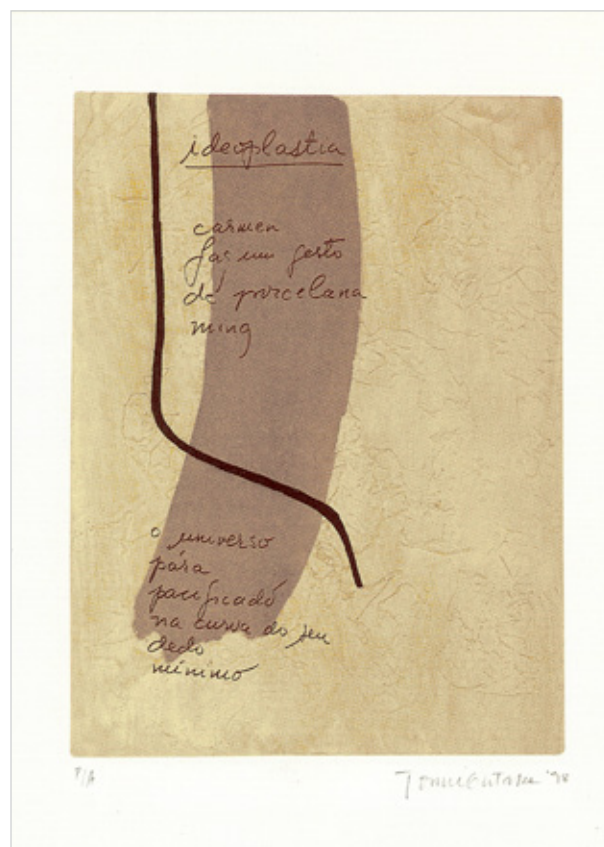 ideoplastia
carmen
faz um gesto
de porcelana
ming
o universo
pára
pacificado
na curva do seu
dedo
mínimo
P/A
Tomie Ohtake '98